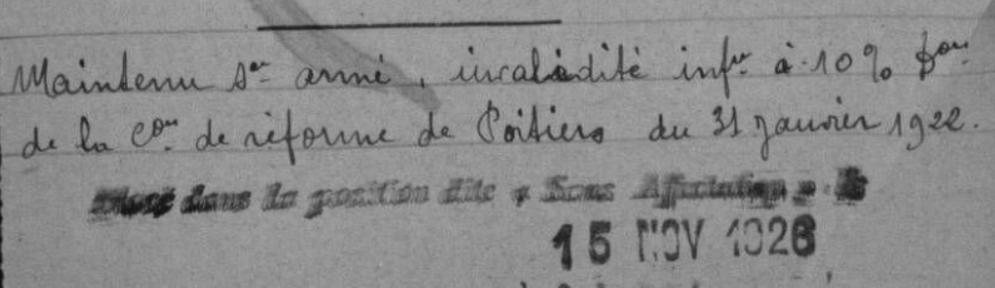 Maintenu s^ce armé, invalidité inf^re à 10% D^on
de la C^on de réforme de Poitiers du 31 Janvier 1922.
Placé dans la position dite « Sans Affectation » le
15 NOV 1926